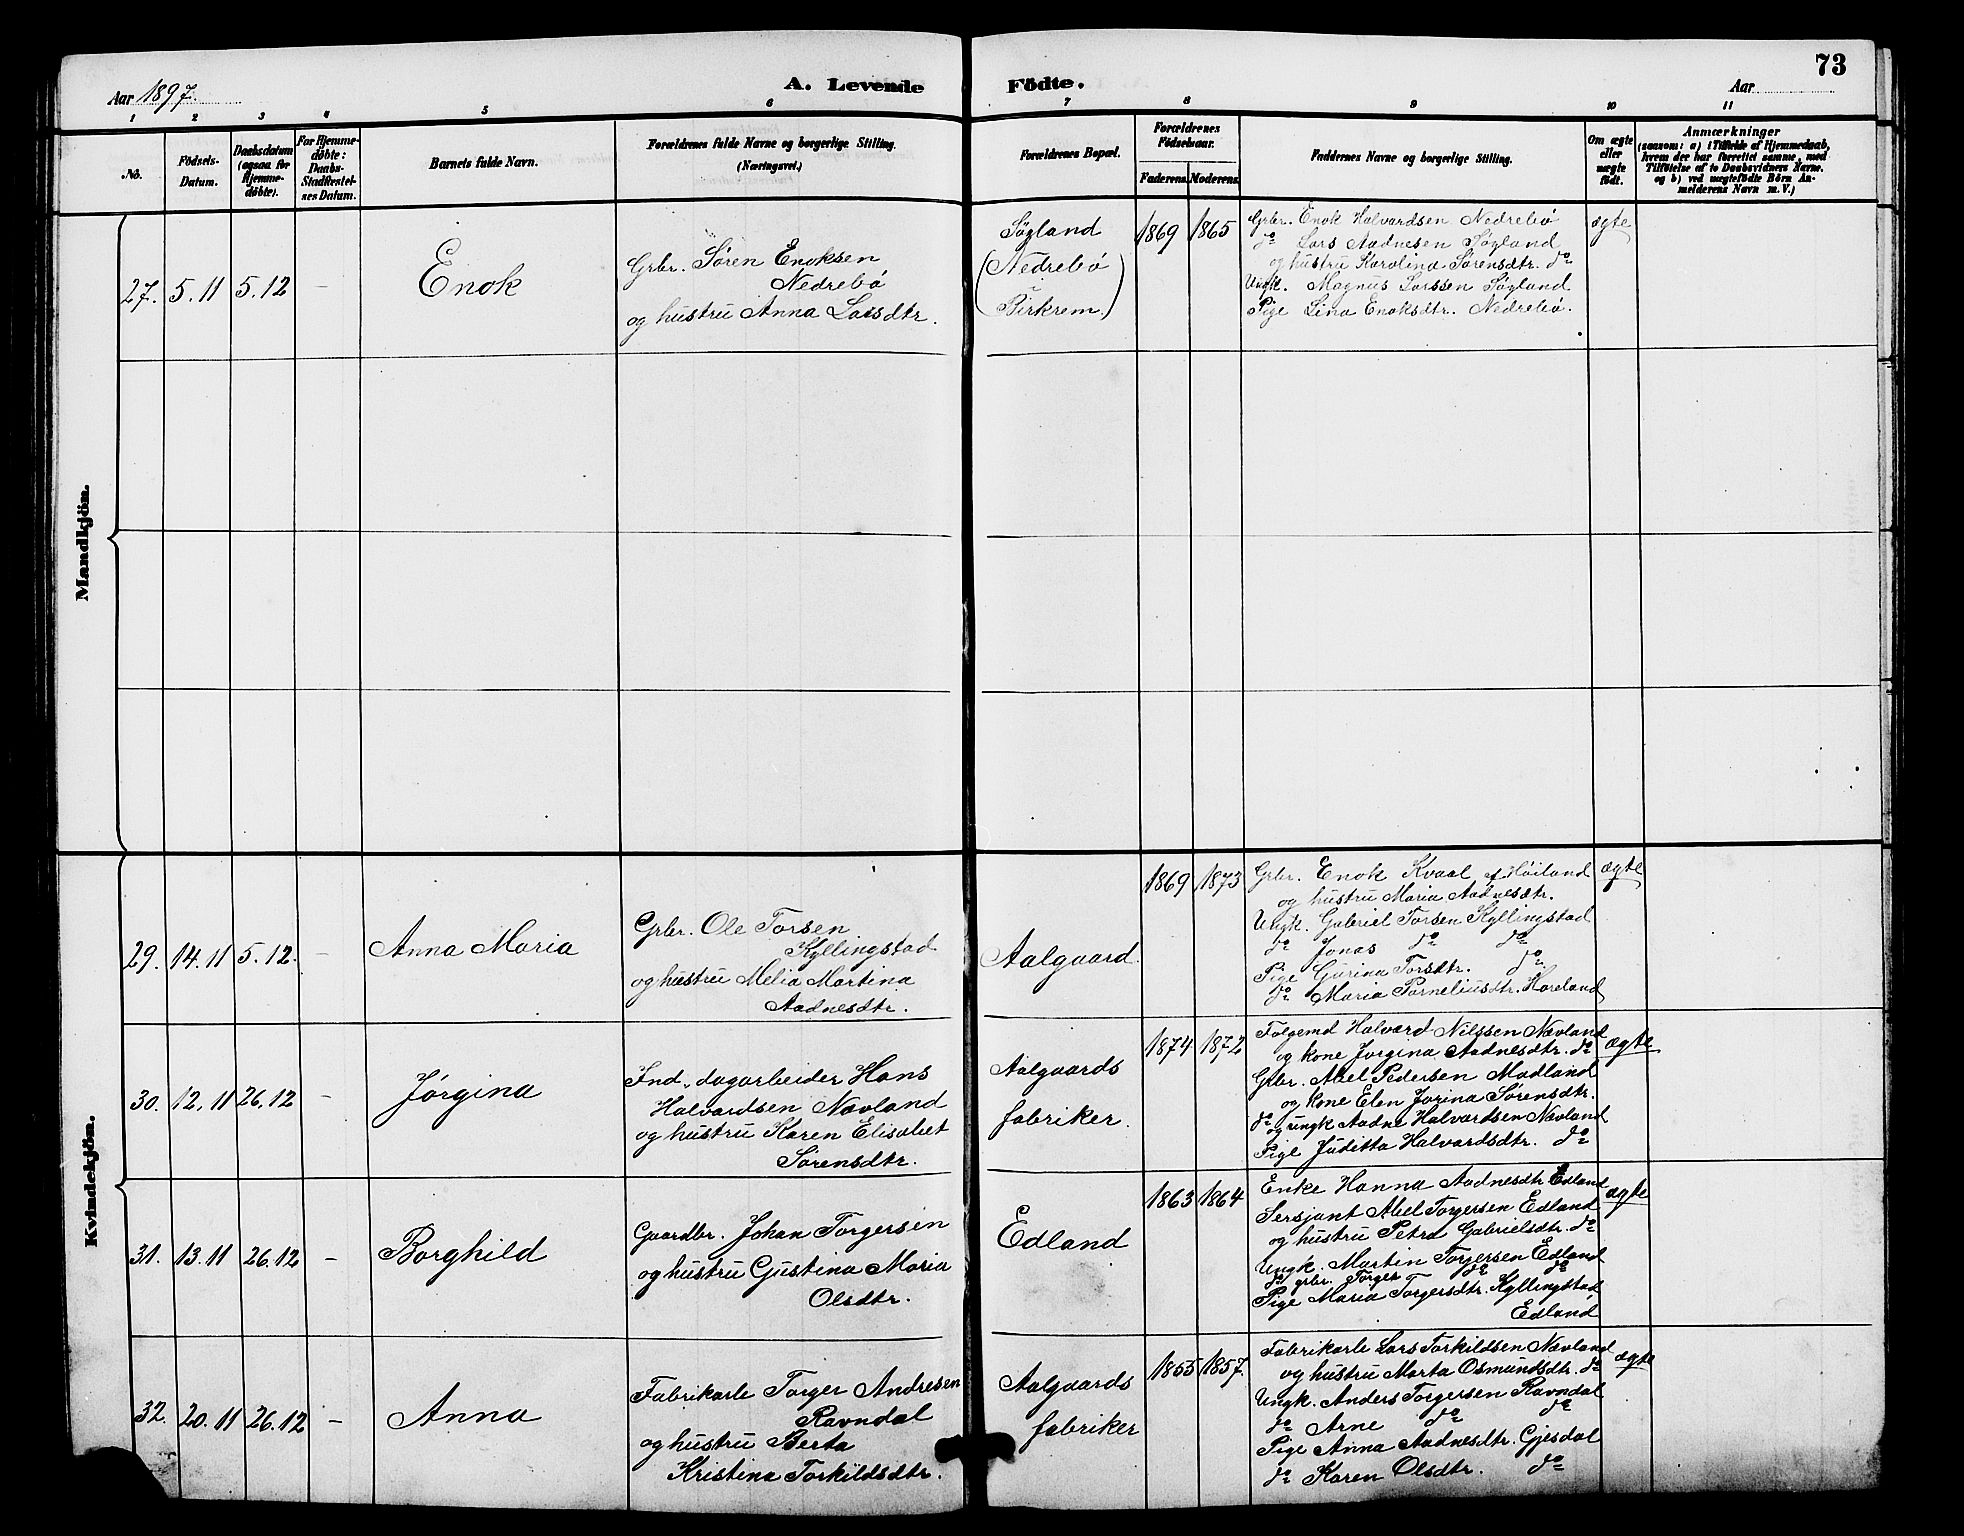 Aar 1897. A. Levende Födte. Aar 73
1 2 3 4 5 6 7 8 9 10 11
No.
Födsels-
Datum.
Daabsdatum
(ogsaa for
Hjemme-
döbte).
For Hjemme-
döbte:
Daabs-
Stadfæstel-
ses Datum.
Barnets fulde Navn.
Forældrenes fulde Navne og borgerlige Stilling.
(Næringsvei.)
Forældrenes Bopæl.
Forældrenes
Födselsaar.
Faderens. Moderens.
Faddernes Navne og borgerlige Stilling.
Om ægte
eller
uægte
födt.
Anmærkninger
(saasom: a) i Tilfælde af Hjemmedaab,
hvem der har forrettet samme, med
Tilföielse af to Daabsvidners Navne.
og b) ved uægtefödte Börn An-
melderens Navn m. V.)
Mandkjön.
27. 5.11 5.12 - Enok
Grbr. Søren Enoksen
Nedrebö
og hustru Anna Larsdtr.
Søgland
(Nedrebö
i
Birkrem.)
1869 1865
Grbr. Enok Halvardsen Nedrebö
do Lars Aadnesen Søgland
og hustru Karolina Sørensdtr. do
Ungk. Magnus Larssen Søgland
Pige Lina Enoksdtr. Nedrebö.
ægte
Kvindekjön.
29. 14.11 5.12. - Anna Maria
Grbr. Ole Torsen
Kyllingstad
og hustru Melia Martina
Aadnesdtr.
Aalgaard.
1869 1873
Grbr. Enok Kvaal af Höiland
og hustru Maria Aadnesdtr.
Ungk. Gabriel Torsen Kyllingstad
do Jonas do do
Pige Gurina Torsdtr. do
do Maria Torneliusdtr. Horeland
ægte
30. 12.11 26.12 - Jørgina
Ind. dagarbeider Hans
Halvardsen Nævland
og hustru Karen Elisabet
Sørensdtr.
Aalgaards
fabriker.
1874 1872
Følgemd Halvard Nilssen Nævland
og kone Jørgina Aadnesdtr. do
Grbr. Abel Pedersen Madland
og kone Elen Jorina Sørensdtr.
do og ungk Aadne Halvardsen Nævland
Pige Juditta Halvardsdtr. do
ægte
31. 13.11 26.12 - Borghild
Gaardbr. Johan Torgersen
og hustru Gustina Maria
Olsdtr.
Edland
1863 1864
Enke Hanna Aadnesdtr Edland
Sersjant Abel Torgersen Edland
og hustru Petra Gabrielsdtr. do
Ungk. Martin Torgersen Edland
do grbr. Torger do do
Pige Maria Torgersdtr. Kyllingstad
Edland
ægte
32. 20.11 26.12 - Anna
Fabrikarb Torger Andresen
Ravndal
og hustru Berta
Kristina Torkildsdtr.
Aalgaards
fabriker
1855 1857.
Fabrikarb Lars Torkildsen Nævland
og hustru Marta Osmundsdtr. do
Ungk. Anders Torgersen Ravndal
do Arne do do
Pige Anna Aadnesdtr. Gjesdal
do Karen Olsdtr. do
ægte